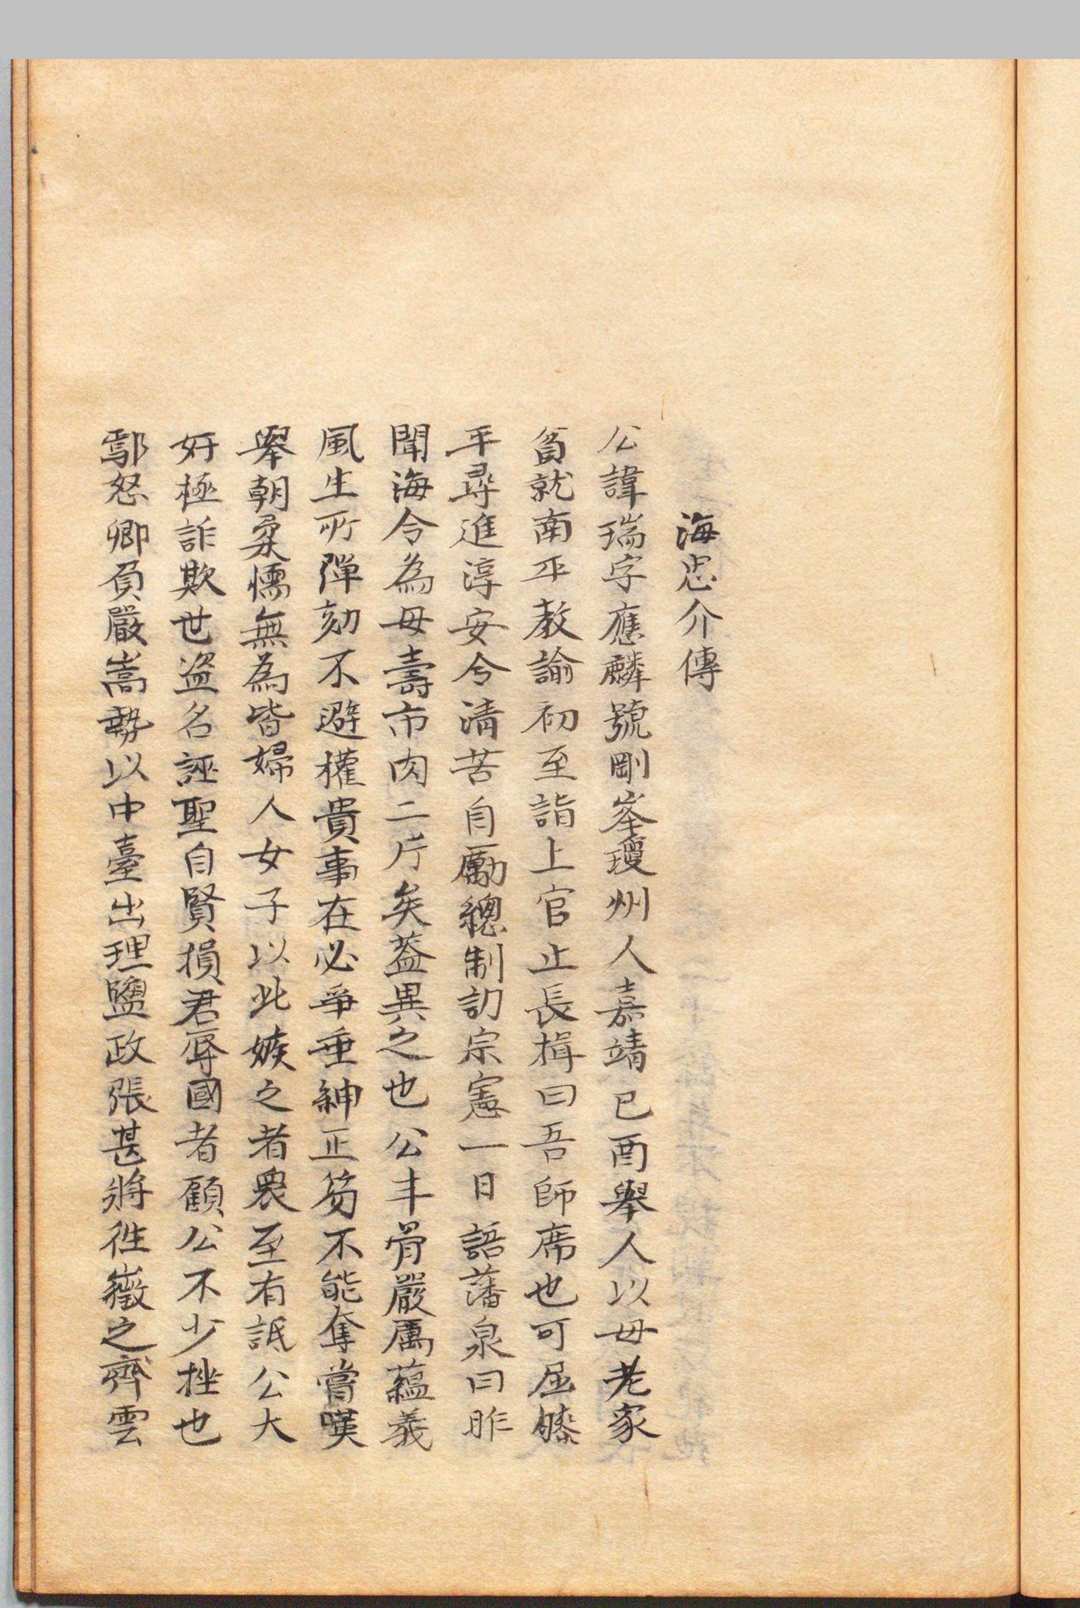 海忠介傳
公諱瑞字應麟號剛峯瓊州人嘉靖已酉舉人以母老家
貧就南平教諭初至詣上官止長揖曰吾師席也可屈膝
乎尋進淳安令清苦自勵總制訪宗憲一日語藩泉曰昨
聞海令為母壽市肉二斤矣葢異之也公丰骨嚴厲蘊義
風生所彈劾不避權貴事在必爭垂紳正笏不能奪嘗嘆
舉朝柔懦無為皆婦人女子以此嫉之者衆至有詆公大
奸極詐欺世盗名誣聖自賢損君辱國者顧公不少挫也
鄢怒卿負嚴嵩勢以中臺出理鹽政張甚將徃徽之齊雲